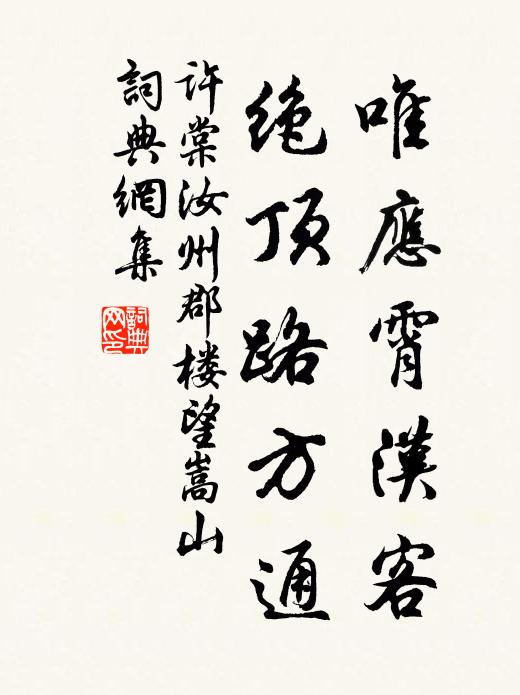 唯應霄漢客
绝顶路方通
許棠汝州郡楼望嵩山
詞典網集
詞典
网印